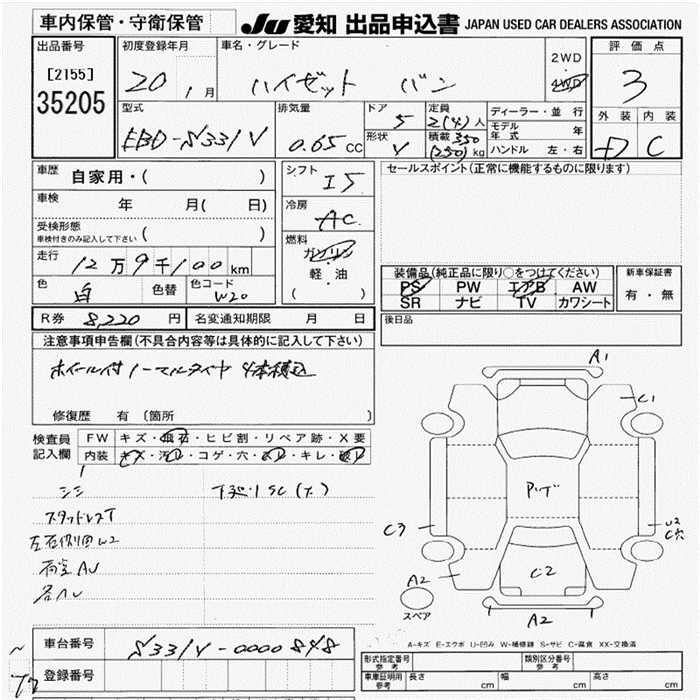 車内保管・守衛保管
JU 愛知 出品申込書 JAPAN USED CAR DEALERS ASSOCIATION
出品番号
[2155]
35205
初度登録年月
20 1月
車名・グレード
ハイゼット バン
2WD
4WD
評価点
3
外装 内装
D C
型式
EBD-S331V
排気量
0.65 CC
ドア
5
形状
V
定員
2(4)人
積載 350
(250)kg
ディーラー・並行
モデル年式 年
ハンドル 左・右
車歴
自家用・( )
車検
年 月( 日)
受検形態
車検付きのみ記入して下さい ( )
走行
12万9千100km
色
白
色替
色コード
W20
シフト
I5
冷房
AC
燃料
ガソリン
軽・油
( )
セールスポイント(正常に機能するものに限ります)
装備品(純正品に限り○をつけてください)
PS PW エアB AW
SR ナビ TV カワシート
新車保証書
有・無
R券 8,220円
名変通知期限 月 日
後日品
注意事項申告欄(不具合内容等は具体的に記入して下さい)
ホイール付ノーマルタイヤ 4本積込
修復歴 有 〔箇所 〕
検査員
記入欄
FW キズ・飛石・ヒビ割・リペア跡・X要
内装 キズ・汚レ・コゲ・穴・スレ・キレ・破レ
スタッドレスT
左右側面W2
荷室AU
各AU
A1
C1
P.ゲ
C3
W2
C穴
C2
A2
A2
スペア
A-キズ E-エクボ U-凹み W-補修跡 S-サビ C-腐食 XX-交換済
車台番号
S331V-0000848
登録番号
型式指定番号
参考
類別区分番号
参考
車庫証明用
参考
長さ cm
幅 cm
高さ cm